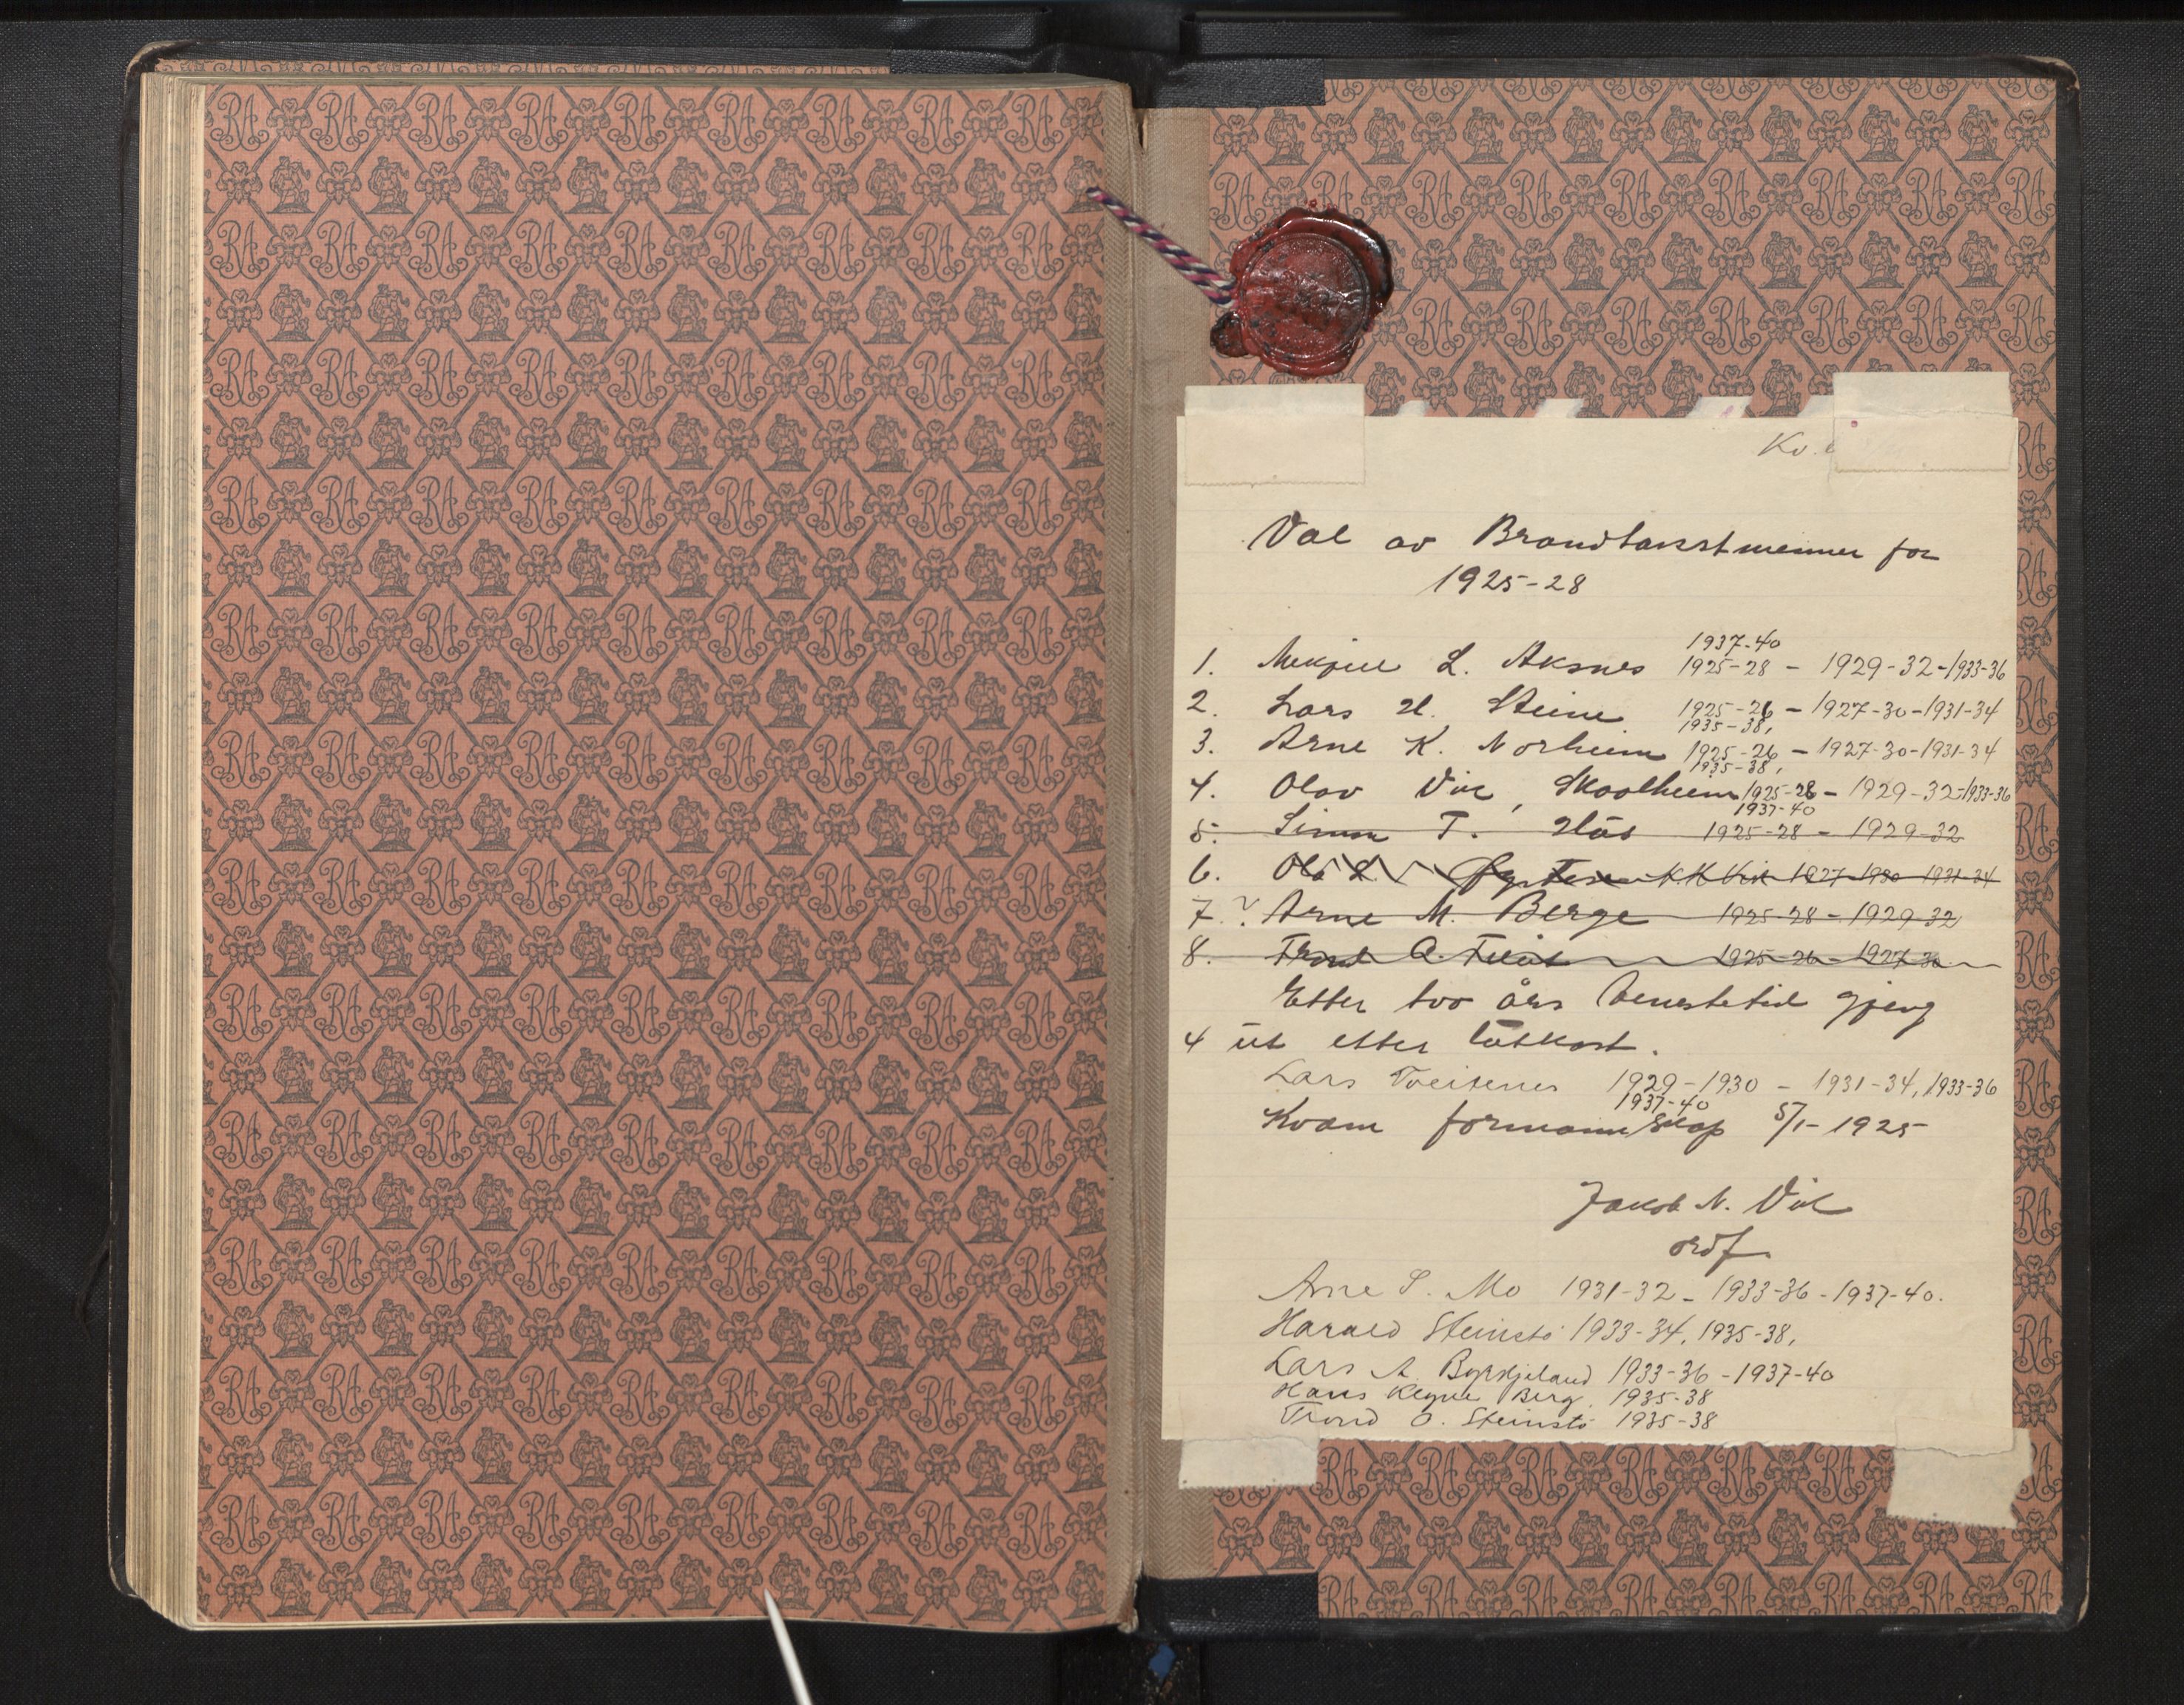 Kv.
Val av Brandtakstmenner for
1925-28
1937-40
1. Mikjell L. Aksnes 1925-28 - 1929-32-1933-36
2. Lars H. Steine 1925-26 - 1927-30-1931-34
1935-38,
3. Arne K. Norheim 1925-26 - 1927-30-1931-34
1935-38,
4. Olav Vik, Skaalheim 1925-28 - 1929-32-1933-36
1937-40
5. Simon T. Flås 1925-28 - 1929-32
6. Ola L. Øystese K. K. Vik 1927-1930 1931-34
7. Arne M. Berge 1925-28 - 1929-32
8. Trond A. 1925-26 - 1927-30
Etter tvo års tenestetid gjeng
4 ut etter lutkast.
Lars Tveitenes 1929-1930 - 1931-34, 1933-36
1937-40
Kvam formannskap 5/1-1925
Jakob N. Vik
ordf
Arne S. Mo 1931-32 - 1933-36 - 1937-40.
Harald Steinstø 1933-34, 1935-38,
Lars A. Byrkjeland 1933-36 - 1937-40
Hans Berg. 1935-38
Trond O. Steinstø 1935-38